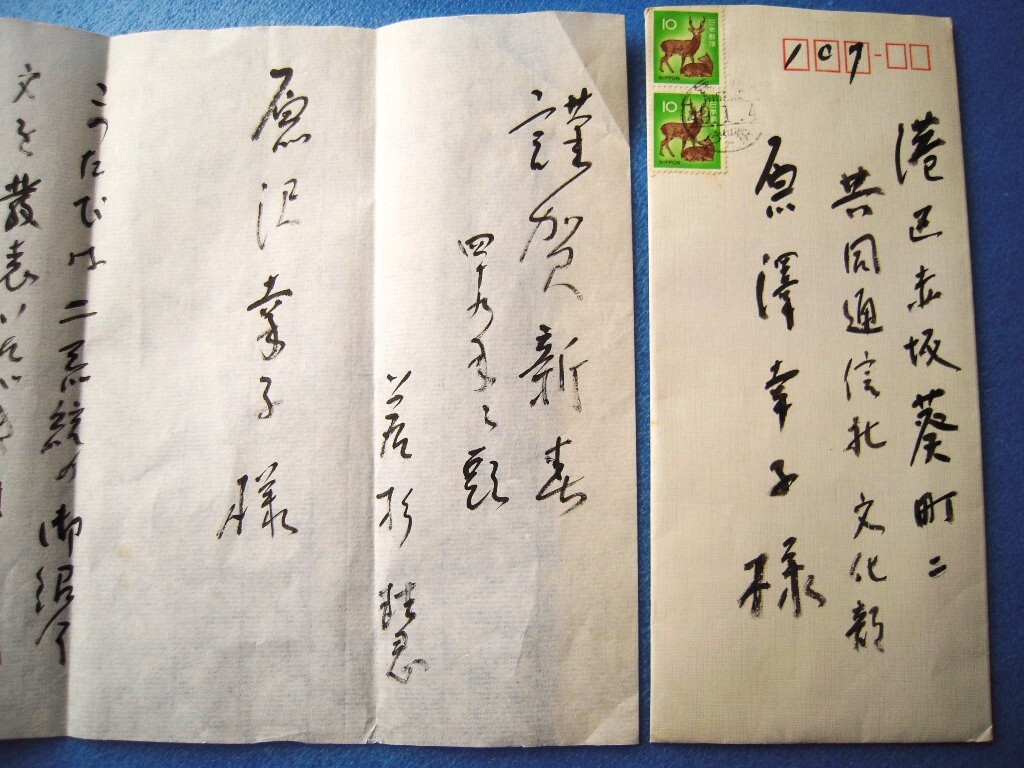 107
港区赤坂葵町二
共同通信社 文化部
原澤幸子様
10
日本郵便
NIPPON
10
日本郵便
NIPPON
謹賀新春
四十九年之頭
若杉 慧
原沢幸子様
このたびは二 の御紹介
文を發表